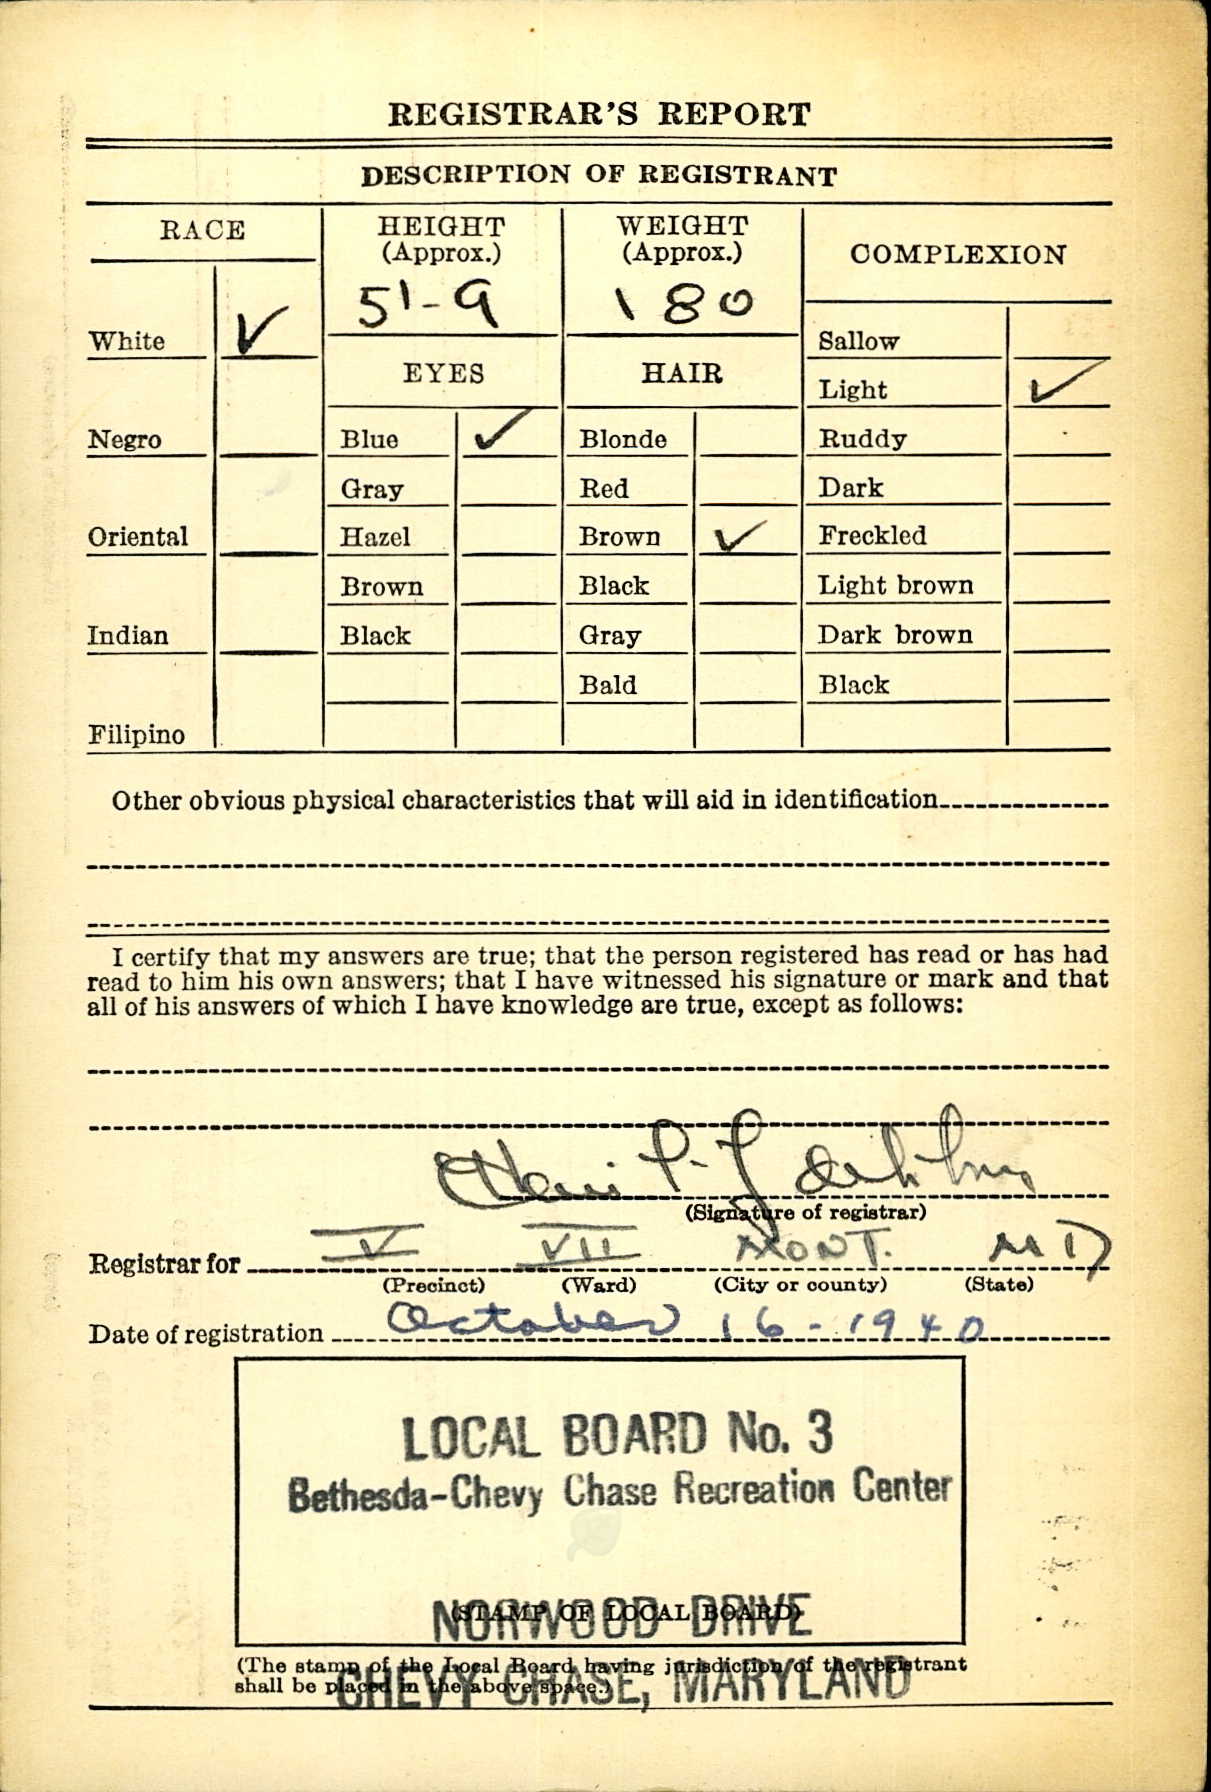 REGISTRAR'S REPORT
DESCRIPTION OF REGISTRANT
RACE
HEIGHT
(Approx.)
WEIGHT
(Approx.)
COMPLEXION
5'-9
180
White ✓
Sallow
EYES
HAIR
Light ✓
Negro
Blue ✓
Blonde
Ruddy
Gray
Red
Dark
Oriental
Hazel
Brown ✓
Freckled
Brown
Black
Light brown
Indian
Black
Gray
Dark brown
Bald
Black
Filipino
Other obvious physical characteristics that will aid in identification
I certify that my answers are true; that the person registered has read or has had
read to him his own answers; that I have witnessed his signature or mark and that
all of his answers of which I have knowledge are true, except as follows:
(Signature of registrar)
Registrar for V VII MONT. MD
(Precinct) (Ward) (City or county) (State)
Date of registration October 16-1940
LOCAL BOARD No. 3
Bethesda-Chevy Chase Recreation Center
NORWOOD DRIVE
(STAMP OF LOCAL BOARD)
(The stamp of the Local Board having jurisdiction of the registrant
shall be placed in the above space.)
CHEVY CHASE, MARYLAND